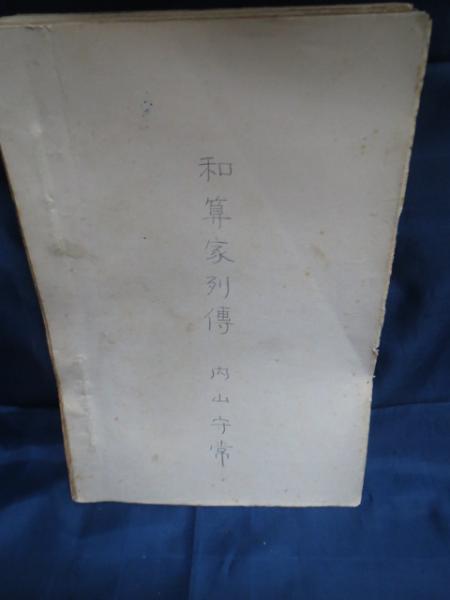 和算家列傳 内山守常